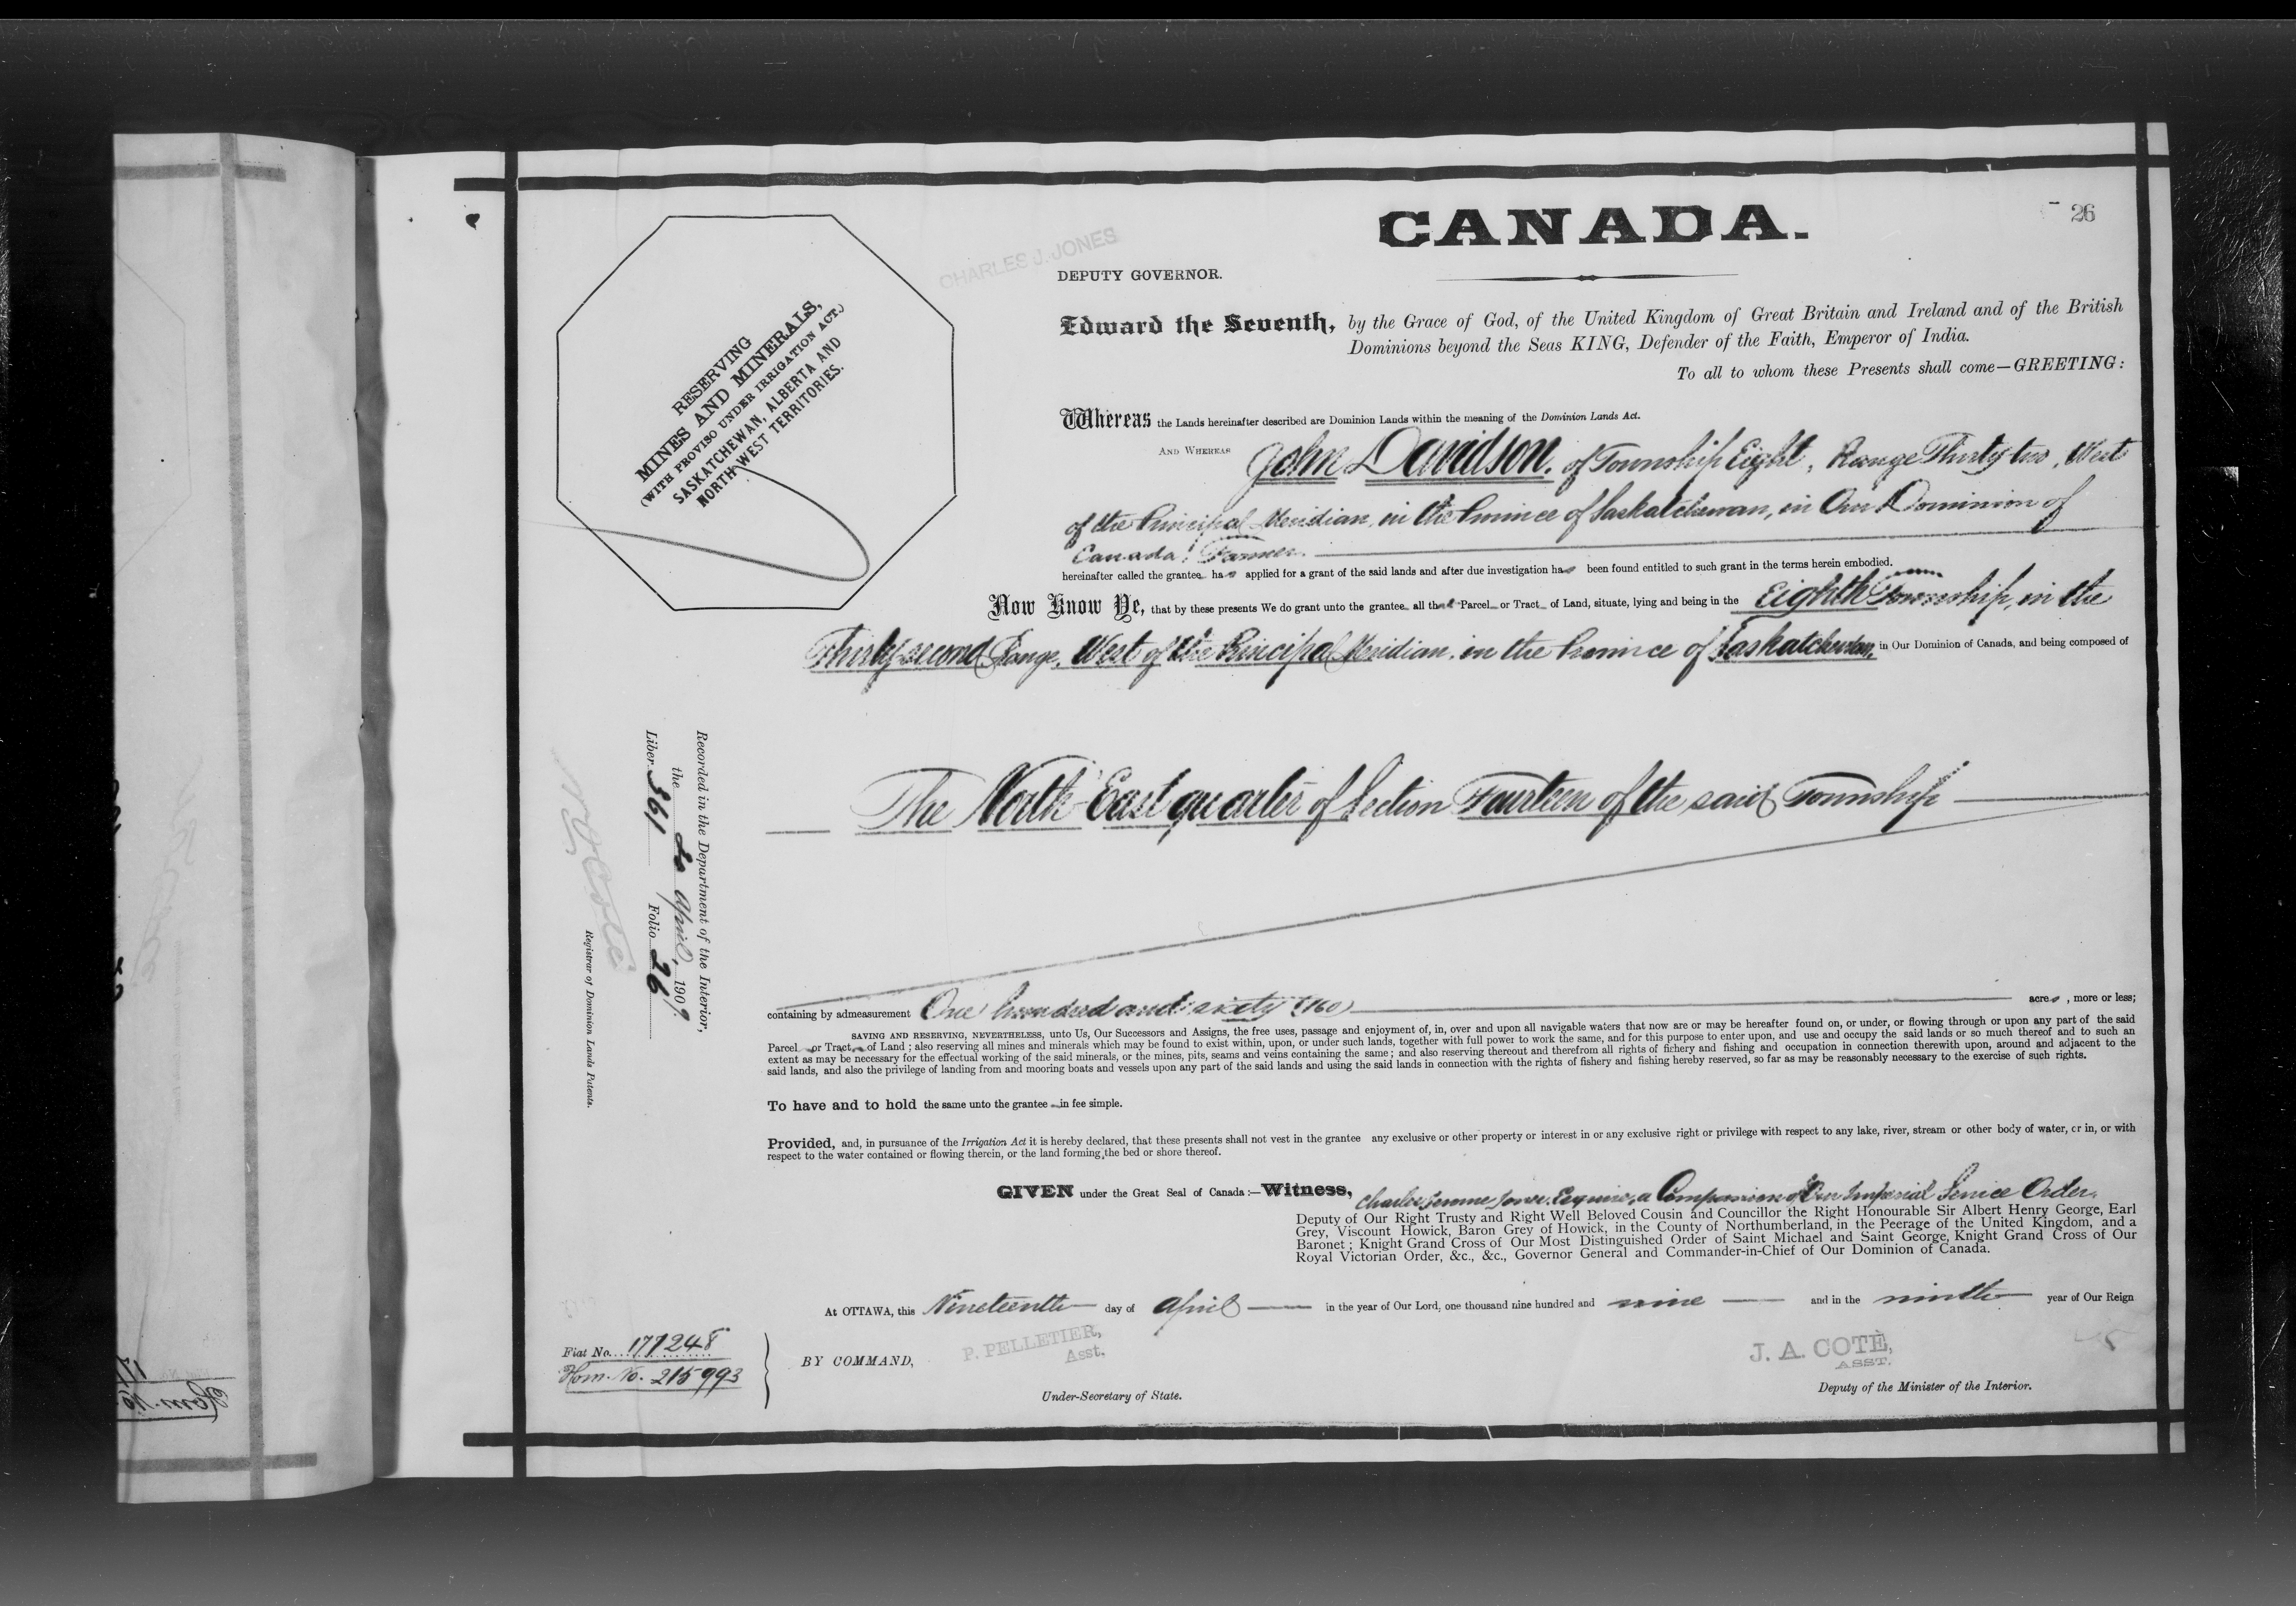 26
CANADA.
CHARLES J. JONES
DEPUTY GOVERNOR.
RESERVING
MINES AND MINERALS,
(WITH PROVISO UNDER IRRIGATION ACT.)
SASKATCHEWAN, ALBERTA AND
NORTH-WEST TERRITORIES.
Edward the Seventh, by the Grace of God, of the United Kingdom of Great Britain and Ireland and of the British
Dominions beyond the Seas KING, Defender of the Faith, Emperor of India.
To all to whom these Presents shall come—GREETING:
Whereas the Lands hereinafter described are Dominion Lands within the meaning of the Dominion Lands Act.
AND WHEREAS John Davidson, of Township Eight, Range Thirty-two, West
of the Principal Meridian, in the Province of Saskatchewan, in Our Dominion of
Canada, Farmer.
hereinafter called the grantee has applied for a grant of the said lands and after due investigation has been found entitled to such grant in the terms herein embodied.
Now Know Ye, that by these presents We do grant unto the grantee all that Parcel or Tract of Land, situate, lying and being in the Eighth Township, in the
Thirty-second Range, West of the Principal Meridian, in the Province of Saskatchewan, in Our Dominion of Canada, and being composed of
The North-East quarter of Section Fourteen of the said Township
containing by admeasurement One hundred and sixty (160) acres, more or less;
SAVING AND RESERVING, NEVERTHELESS, unto Us, Our Successors and Assigns, the free uses, passage and enjoyment of, in, over and upon all navigable waters that now are or may be hereafter found on, or under, or flowing through or upon any part of the said
Parcel or Tract of Land; also reserving all mines and minerals which may be found to exist within, upon, or under such lands, together with full power to work the same, and for this purpose to enter upon, and use and occupy the said lands or so much thereof and to such an
extent as may be necessary for the effectual working of the said minerals, or the mines, pits, seams and veins containing the same; and also reserving thereout and therefrom all rights of fishery and fishing and occupation in connection therewith upon, around and adjacent to the
said lands, and also the privilege of landing from and mooring boats and vessels upon any part of the said lands and using the said lands in connection with the rights of fishery and fishing hereby reserved, so far as may be reasonably necessary to the exercise of such rights.
To have and to hold the same unto the grantee in fee simple.
Provided, and, in pursuance of the Irrigation Act it is hereby declared, that these presents shall not vest in the grantee any exclusive or other property or interest in or any exclusive right or privilege with respect to any lake, river, stream or other body of water, or in, or with
respect to the water contained or flowing therein, or the land forming the bed or shore thereof.
GIVEN under the Great Seal of Canada:—Witness, Charles Jerome Jones, Esquire, a Companion of Our Imperial Service Order,
Deputy of Our Right Trusty and Right Well Beloved Cousin and Councillor the Right Honourable Sir Albert Henry George, Earl
Grey, Viscount Howick, Baron Grey of Howick, in the County of Northumberland, in the Peerage of the United Kingdom, and a
Baronet; Knight Grand Cross of Our Most Distinguished Order of Saint Michael and Saint George, Knight Grand Cross of Our
Royal Victorian Order, &c., &c., Governor General and Commander-in-Chief of Our Dominion of Canada.
At OTTAWA, this Nineteenth day of April in the year of Our Lord, one thousand nine hundred and nine and in the ninth year of Our Reign
BY COMMAND,
P. PELLETIER,
Asst.
Under-Secretary of State.
J. A. COTÈ,
ASST.
Deputy of the Minister of the Interior.
Recorded in the Department of the Interior,
the 20 April, 1909.
Liber 361 Folio 26
N O Coté
Registrar of Dominion Lands Patents.
Fiat No. 177248
Hom. No. 215993